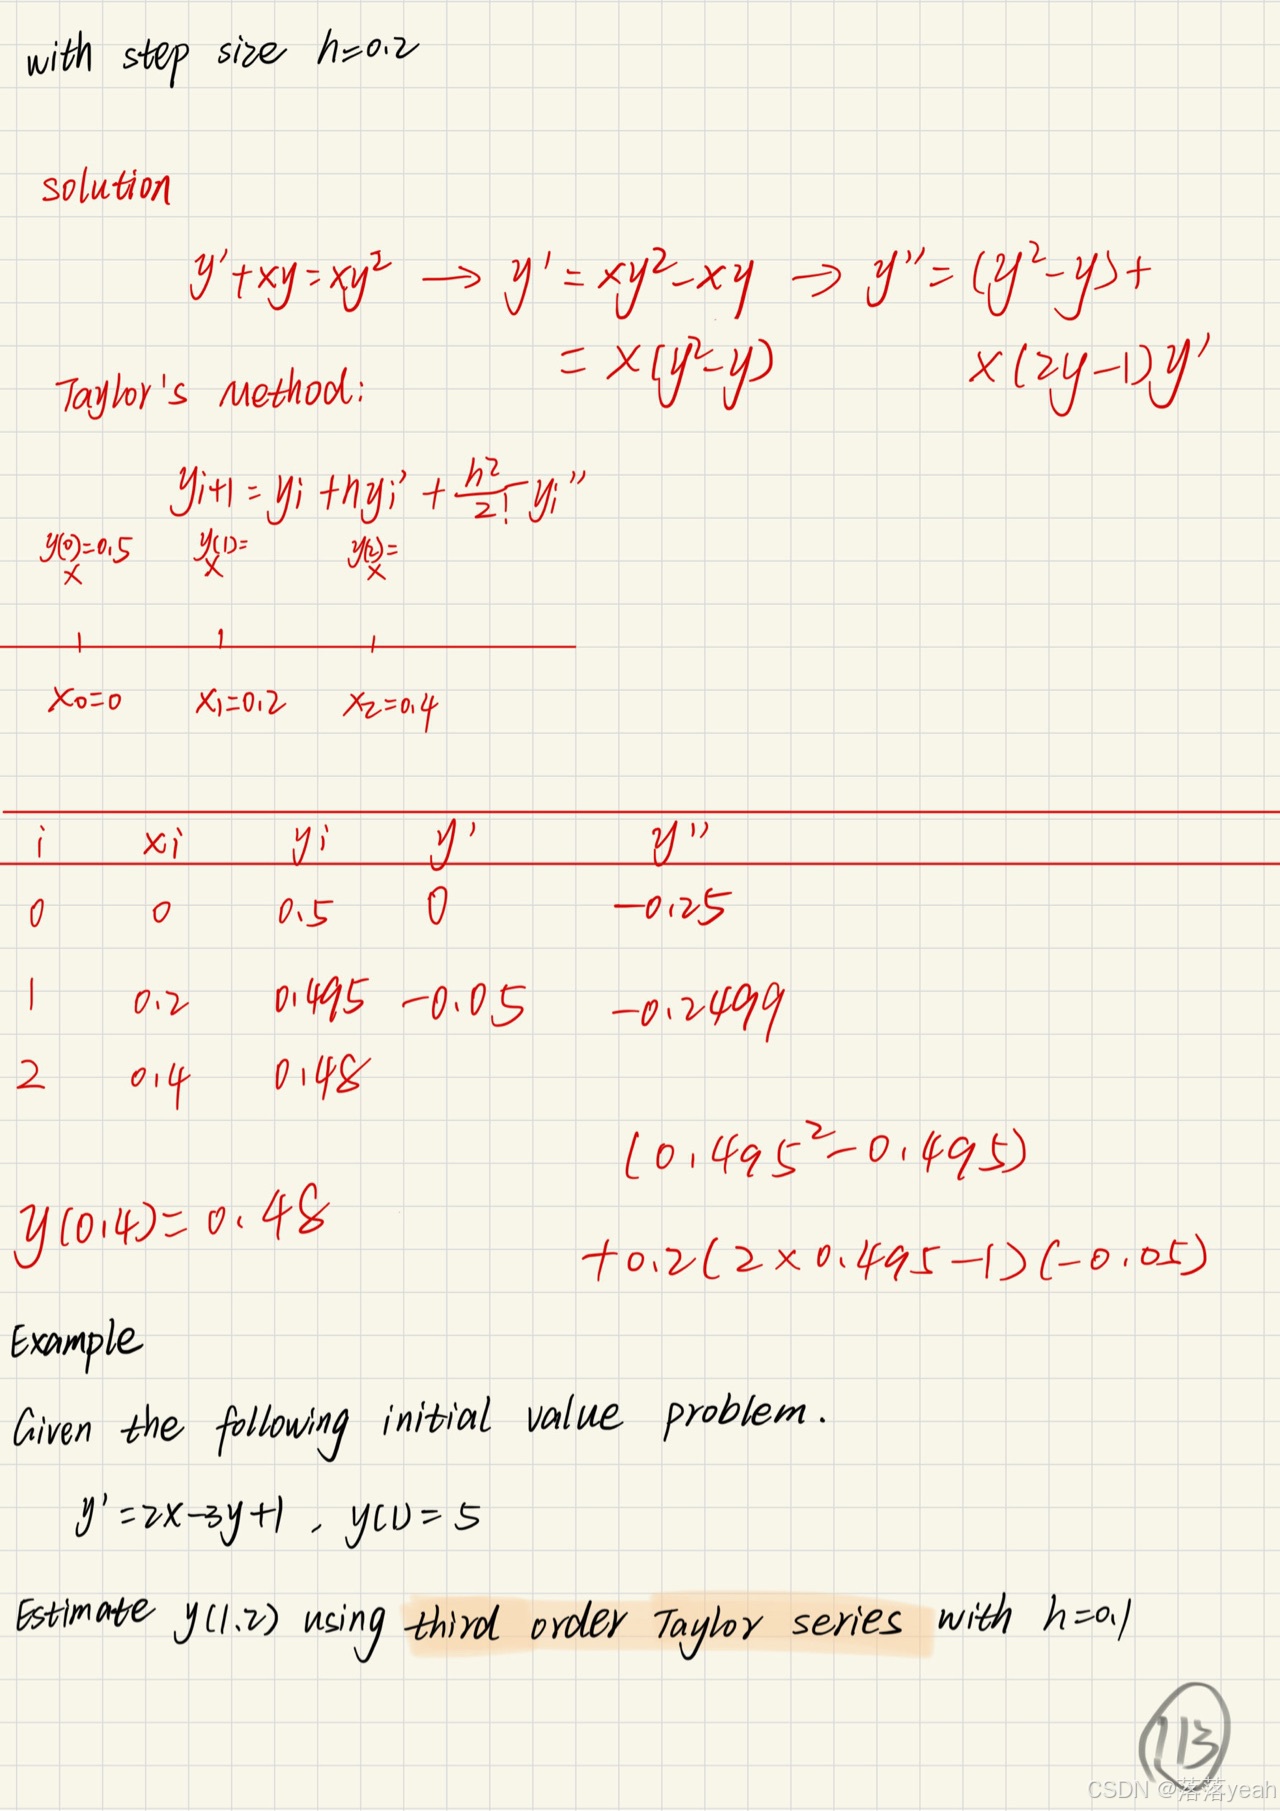 with step size h=0.2
solution
y'+xy=xy² → y'=xy²-xy → y''=(y²-y)+
=x(y²-y) x(2y-1)y'
Taylor's Method:
yi+1=yi+hyi'+h²/2! yi''
y(0)=0.5 y(1)= y(2)=
x x x
x₀=0 x₁=0.2 x₂=0.4
i xi yi y' y''
0 0 0.5 0 -0.25
1 0.2 0.495 -0.05 -0.2499
2 0.4 0.48
(0.495²-0.495)
y(0.4)=0.48
+0.2(2×0.495-1)(-0.05)
Example
Given the following initial value problem.
y'=2x-3y+1, y(1)=5
Estimate y(1.2) using third order Taylor series with h=0.1
113
CSDN @落落yeah